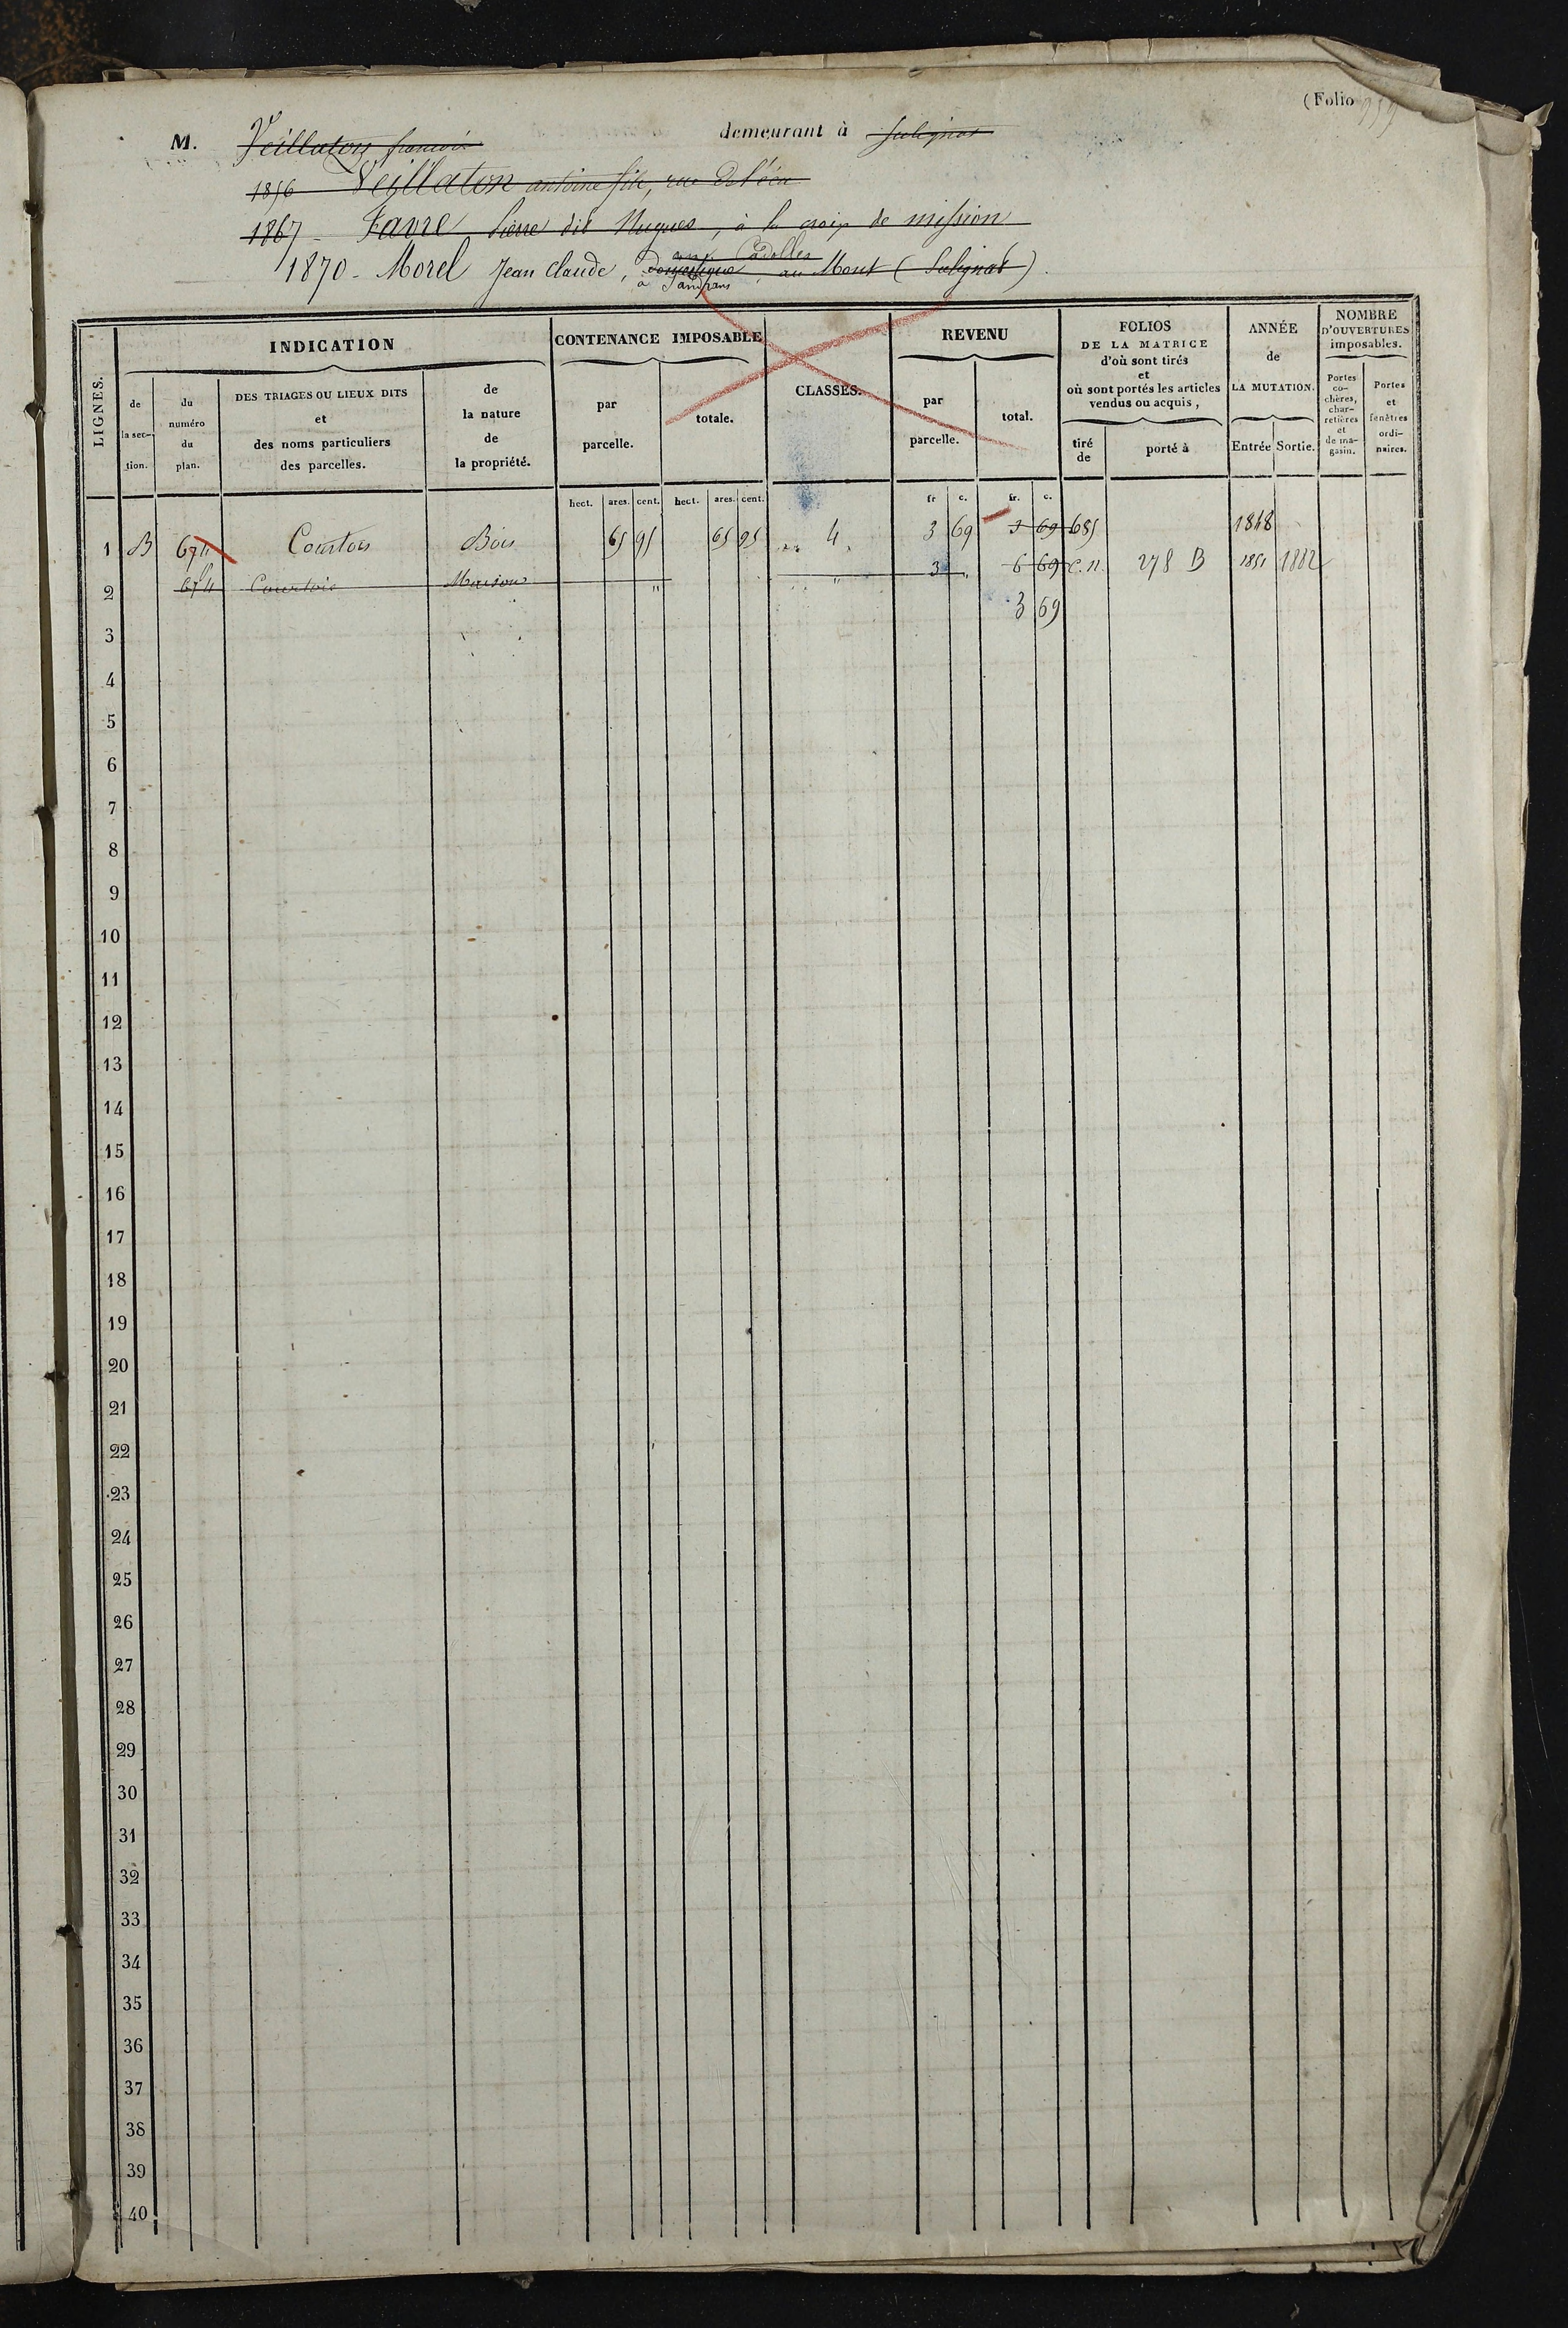 (Folio 959
M. Veillaton francois demeurant à Salignat
1856 Veillaton antoine fils, rue de l'écu
1867 - Favre Pierre dit Hugues, à la croix de mission
aux Cadolles
1870 - Morel Jean Claude, domestique, au Mont (Salignat)
à Sampans
LIGNES.
INDICATION
de la section.
du numéro du plan.
DES TRIAGES OU LIEUX DITS et des noms particuliers des parcelles.
de la nature de la propriété.
CONTENANCE IMPOSABLE
par parcelle.
totale.
CLASSES.
REVENU
par parcelle.
total.
FOLIOS DE LA MATRICE d'où sont tirés et où sont portés les articles vendus ou acquis,
tiré de
porté à
ANNÉE de LA MUTATION.
Entrée Sortie.
NOMBRE D'OUVERTURES imposables.
Portes cochères, charretières et de magasin.
Portes et fenêtres ordinaires.
hect. ares. cent. hect. ares. cent. fr c. fr. c.
1 B 674 Courtois Bois 65 95 65 95 4 3 69 3 69 685 1848
2 674 Courtois Maison " " 3 " 6 69 C.N. 278 B 1851 1882
3 69
3
4
5
6
7
8
9
10
11
12
13
14
15
16
17
18
19
20
21
22
23
24
25
26
27
28
29
30
31
32
33
34
35
36
37
38
39
40